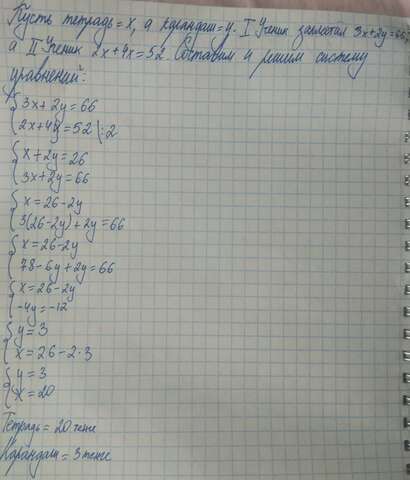 Пусть тетрадь = x, а карандаш = y. I Ученик заплатил 3x+2y=66,
а II Ученик 2x+4x=52. Составим и решим систему
уравнений:
{3x+2y=66
2x+4y=52 |:2
{x+2y=26
3x+2y=66
{x=26-2y
3(26-2y)+2y=66
{x=26-2y
78-6y+2y=66
{x=26-2y
-4y=-12
{y=3
x=26-2·3
{y=3
x=20
Тетрадь = 20 тенге
Карандаш = 3 тенге